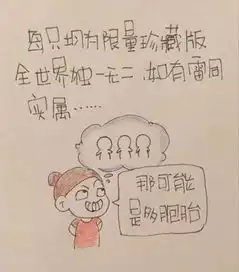 每只均为限量珍藏版
全世界独一无二.如有雷同
实属……
那可能
是多胞胎